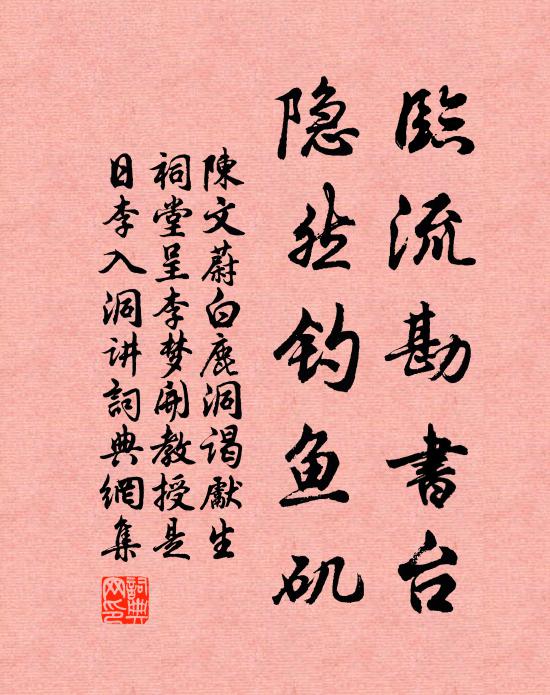 臨流勘書台
隐然钓鱼矶
陳文蔚白鹿洞谒獻生
祠堂呈李梦開教授是
日李入洞讲詞典網集
詞典
网印